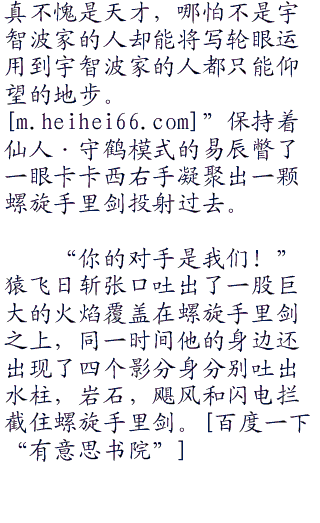 真不愧是天才，哪怕不是宇
智波家的人却能将写轮眼运
用到宇智波家的人都只能仰
望的地步。
[m.heihei66.com]”保持着
仙人·守鹤模式的易辰瞥了
一眼卡卡西右手凝聚出一颗
螺旋手里剑投射过去。
“你的对手是我们！”
猿飞日斩张口吐出了一股巨
大的火焰覆盖在螺旋手里剑
之上，同一时间他的身边还
出现了四个影分身分别吐出
水柱，岩石，飓风和闪电拦
截住螺旋手里剑。[百度一下
“有意思书院”]